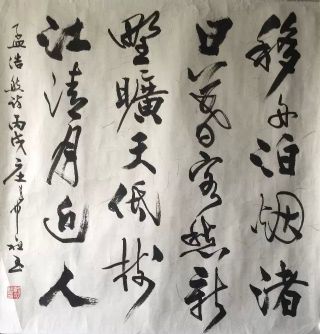 移舟泊烟渚
日暮客愁新
野旷天低树
江清月近人
孟浩然诗丙戌